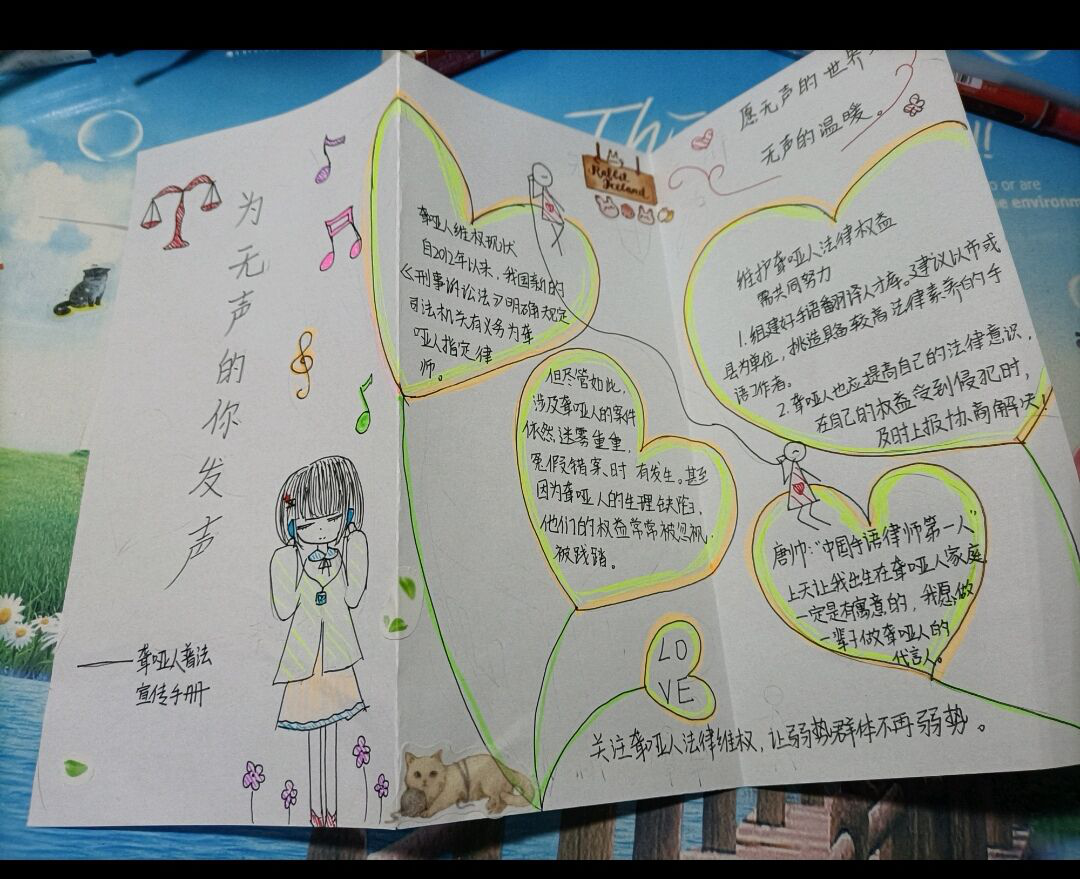 为无声的你发声
——聋哑人普法
宣传手册
聋哑人维权现状
自2012年以来，我国新的
《刑事诉讼法》明确规定
司法机关有义务为聋
哑人指定律
师。
My
Rabbit
Iceland
但尽管如此，
涉及聋哑人的案件
依然迷雾重重，
冤假错案时有发生。甚至
因为聋哑人的生理缺陷，
他们的权益常常被忽视，
被践踏。
LO
VE
愿无声的世界
无声的温暖。
维护聋哑人法律权益
需共同努力
1.组建好手语翻译人才库。建议以市或
县为单位，挑选具备较高法律素养的手
语工作者。
2.聋哑人也应提高自己的法律意识，
在自己的权益受到侵犯时，
及时上报协商解决！
唐帅："中国手语律师第一人"
上天让我出生在聋哑人家庭
一定是有寓意的，我愿做
一辈子做聋哑人的
代言人。
关注聋哑人法律维权，让弱势群体不再弱势。
or are
environm